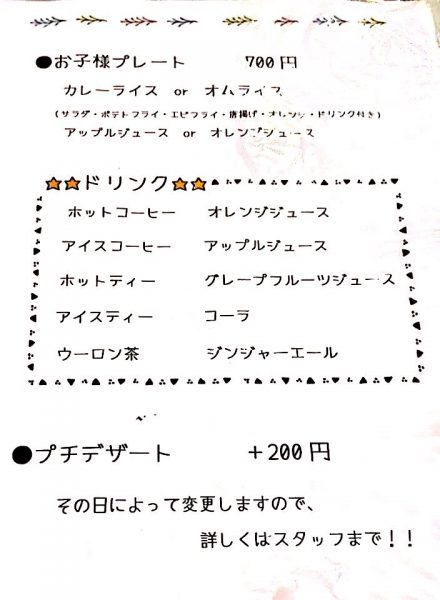 ●お子様プレート 700円
カレーライス or オムライス
(サラダ・ポテトフライ・エビフライ・唐揚げ・オレンジ・ドリンク付き)
アップルジュース or オレンジジュース
★★ドリンク★★
ホットコーヒー オレンジジュース
アイスコーヒー アップルジュース
ホットティー グレープフルーツジュース
アイスティー コーラ
ウーロン茶 ジンジャーエール
●プチデザート +200円
その日によって変更しますので、
詳しくはスタッフまで!!